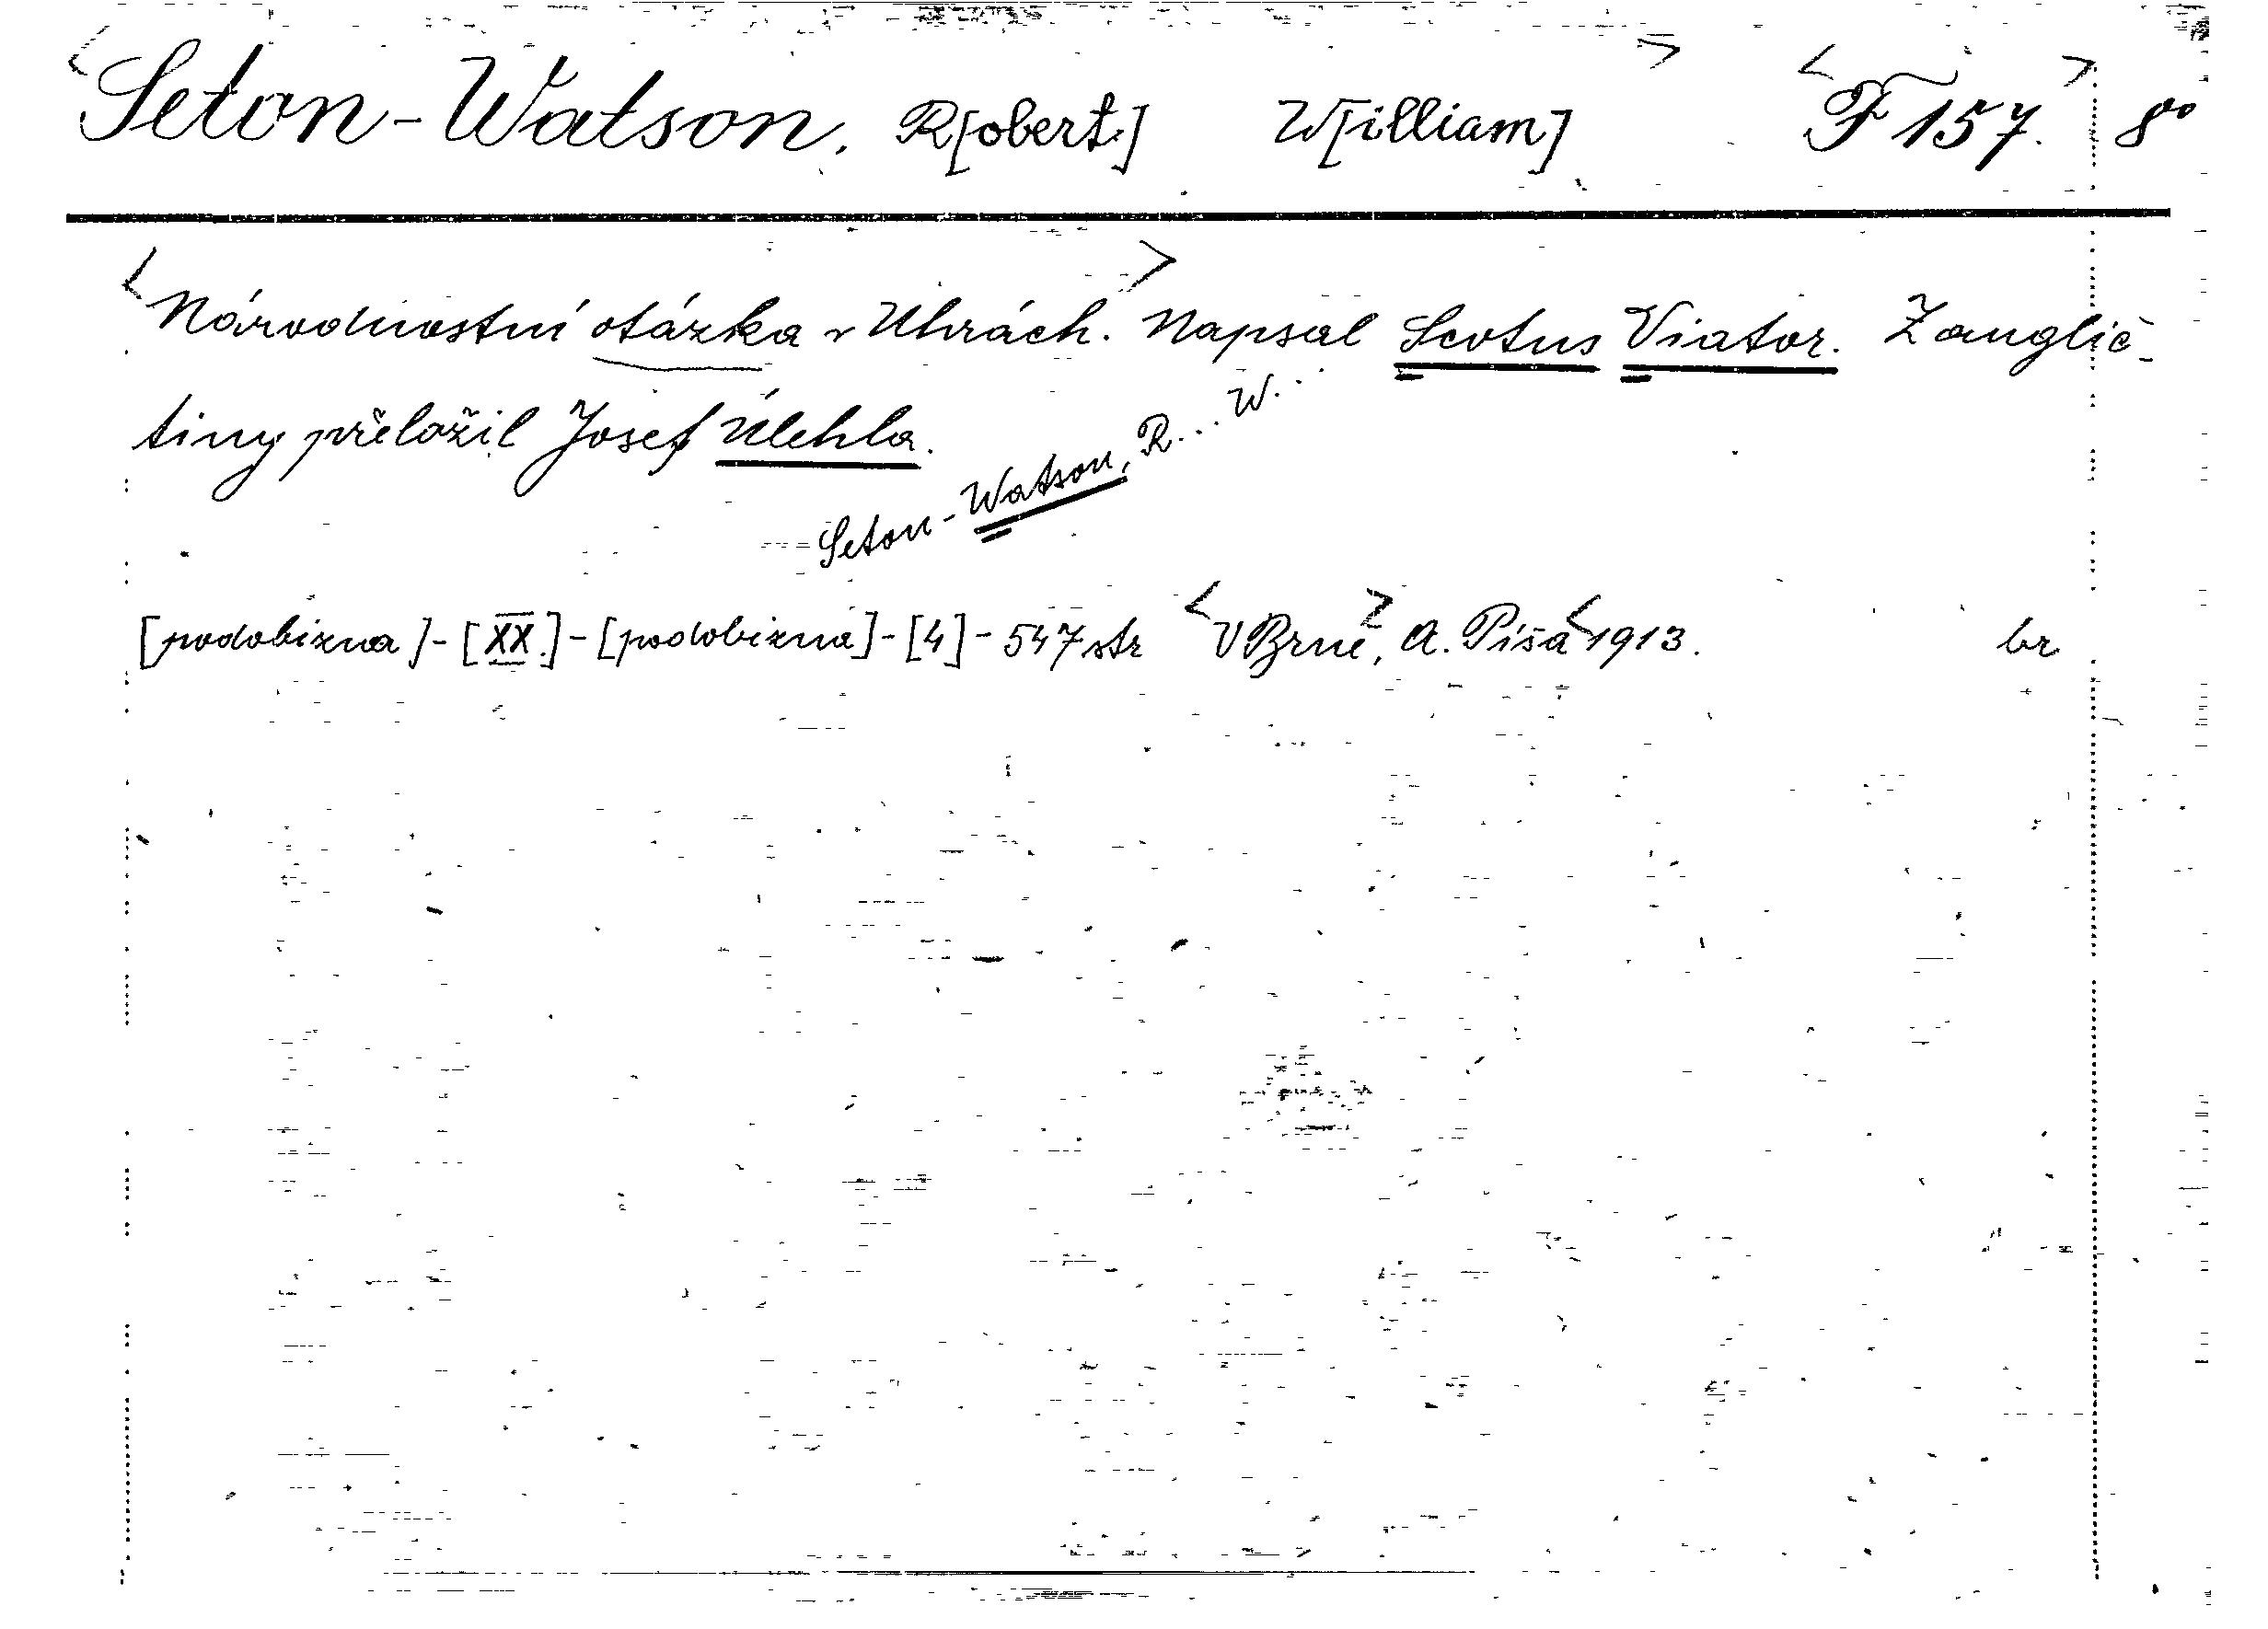 <Seton-Watson, R[obert.] W[illiam]> <F 157.> 8°
<Národnostní otázka v Uhrách.> Napsal Scotus Viator. Z anglič-
tiny přeložil Josef Úlehla.
Seton-Watson, R... W...
[podobizna]-[XX.]-[podobizna]-[4]-547 str <V Brně>, A. Píša <1913. br